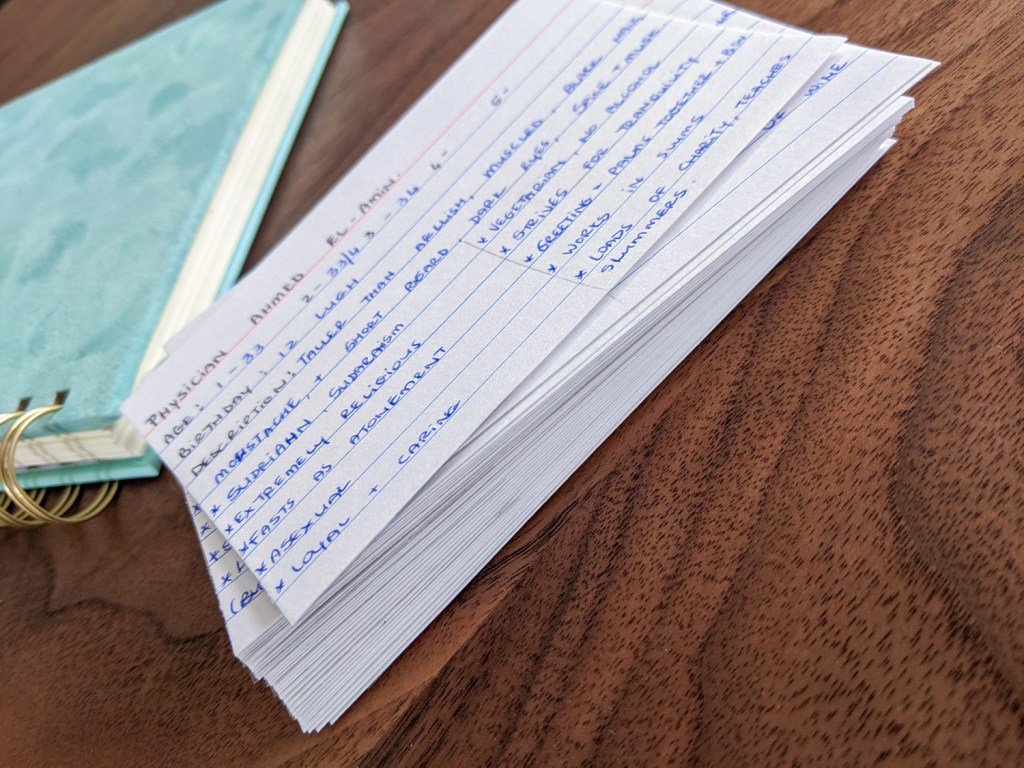 PHYSICIAN AHMED EL-AMIN.
AGE: 1-33 2-33/4 3-34 4- 5-
BIRTHDAY: 12 LUGH
DESCRIPTION: TALLER THAN AELLISH, MUSCLED, BLACK
MOUSTACHE, + SHORT BEARD, DARK EYES, SPICE + MUSK
* SUDRIANN, SUDARAISM * VEGETARIAN, NO ALCOHOL
* EXTREMELY RELIGIOUS * STRIVES FOR TRANQUILITY
* FASTS AS ATONEMENT * GREETING - PALMS TOGETHER +
* ASEXUAL * WORKS IN SLUMS
* LOYAL + CARING * LOADS OF CHARITY, TEACHES
SWIMMERS.